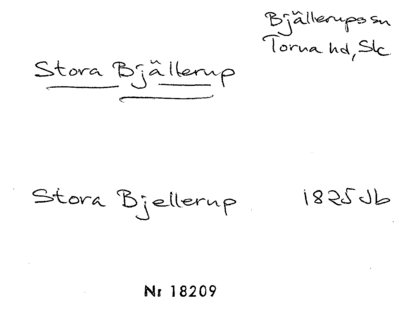 Bjällerups sn
Torna hd, Sk
Stora Bjällerup
Stora Bjellerup 1825 Jb
Nr 18209